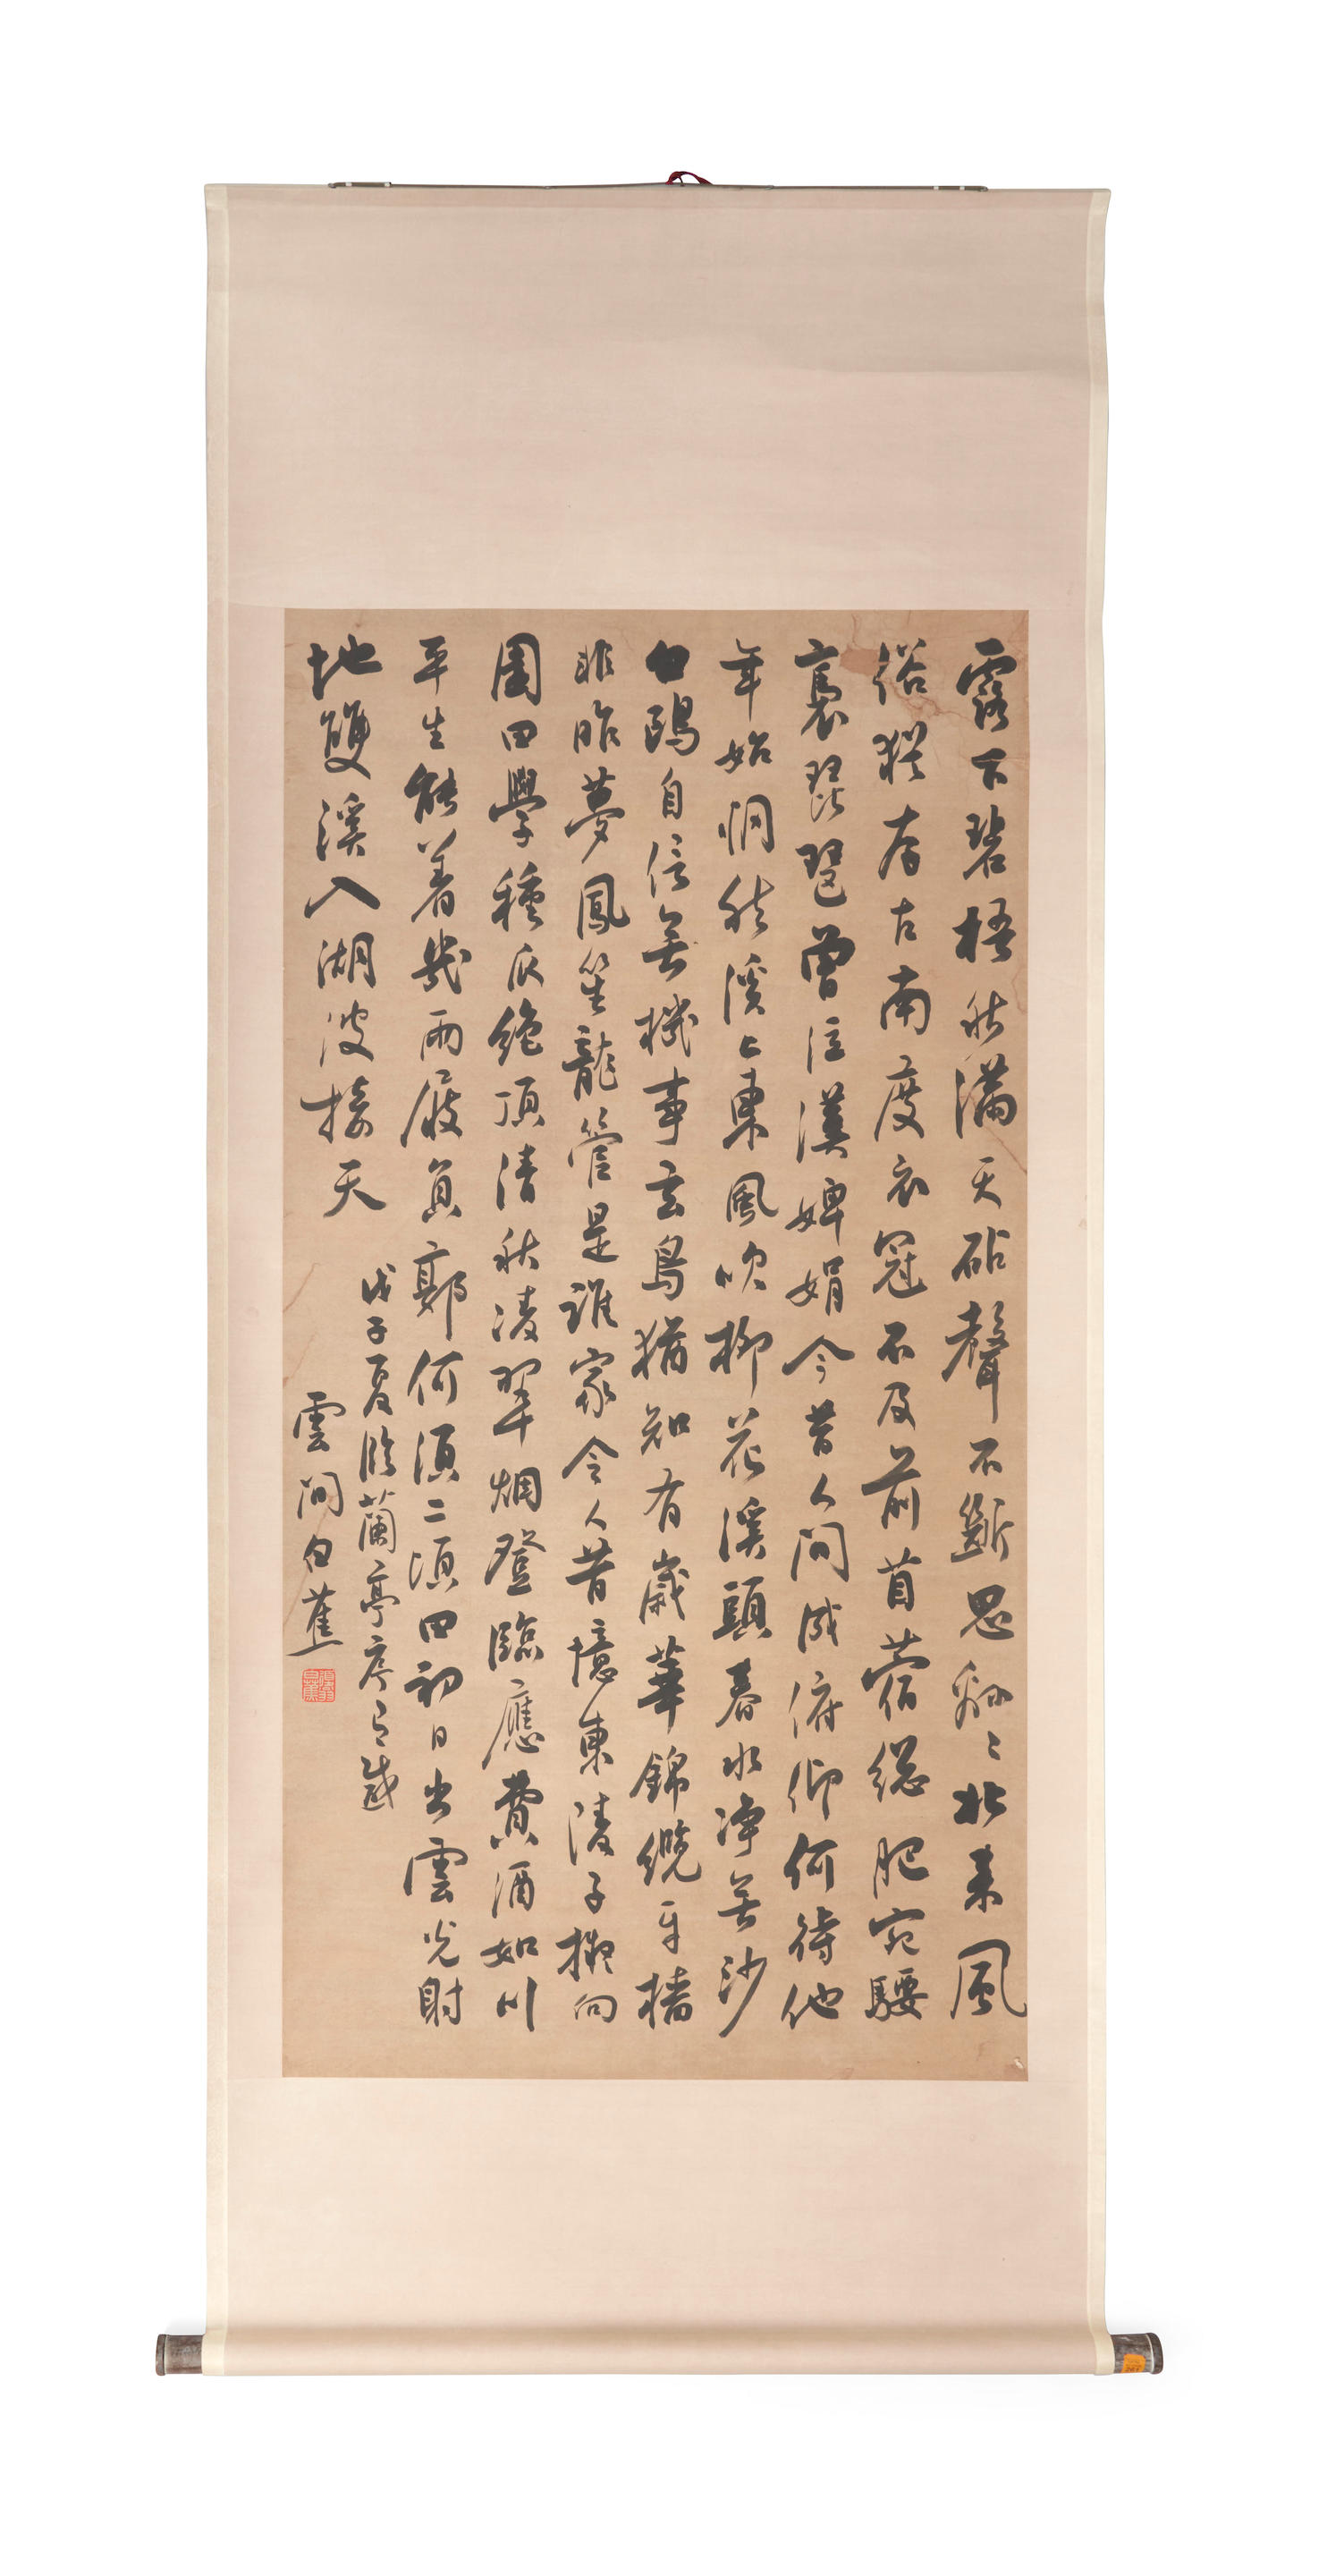 露下碧梧秋滿天砧聲不斷思綿〻北來風
俗猶存古南度衣冠不及前苜蓿總肥宛騕
褭琵琶曾泣漢嬋娟今昔人間成俯仰何待他
年始惘然溪上東風吹柳花溪頭春水淨無沙
白鷗自信無機事玄鳥猶知有歲華錦纜牙檣
非昨夢鳳笙龍管是誰家令人昔憶東陵子擬向
園田學種瓜絕頂清秋凌翠烟登臨應費酒如川
平生能著幾兩屐負郭何須二頃田初日出雲光射
地雙溪入湖波接天
戊子夏臨蘭亭序有感
雲間白蕉